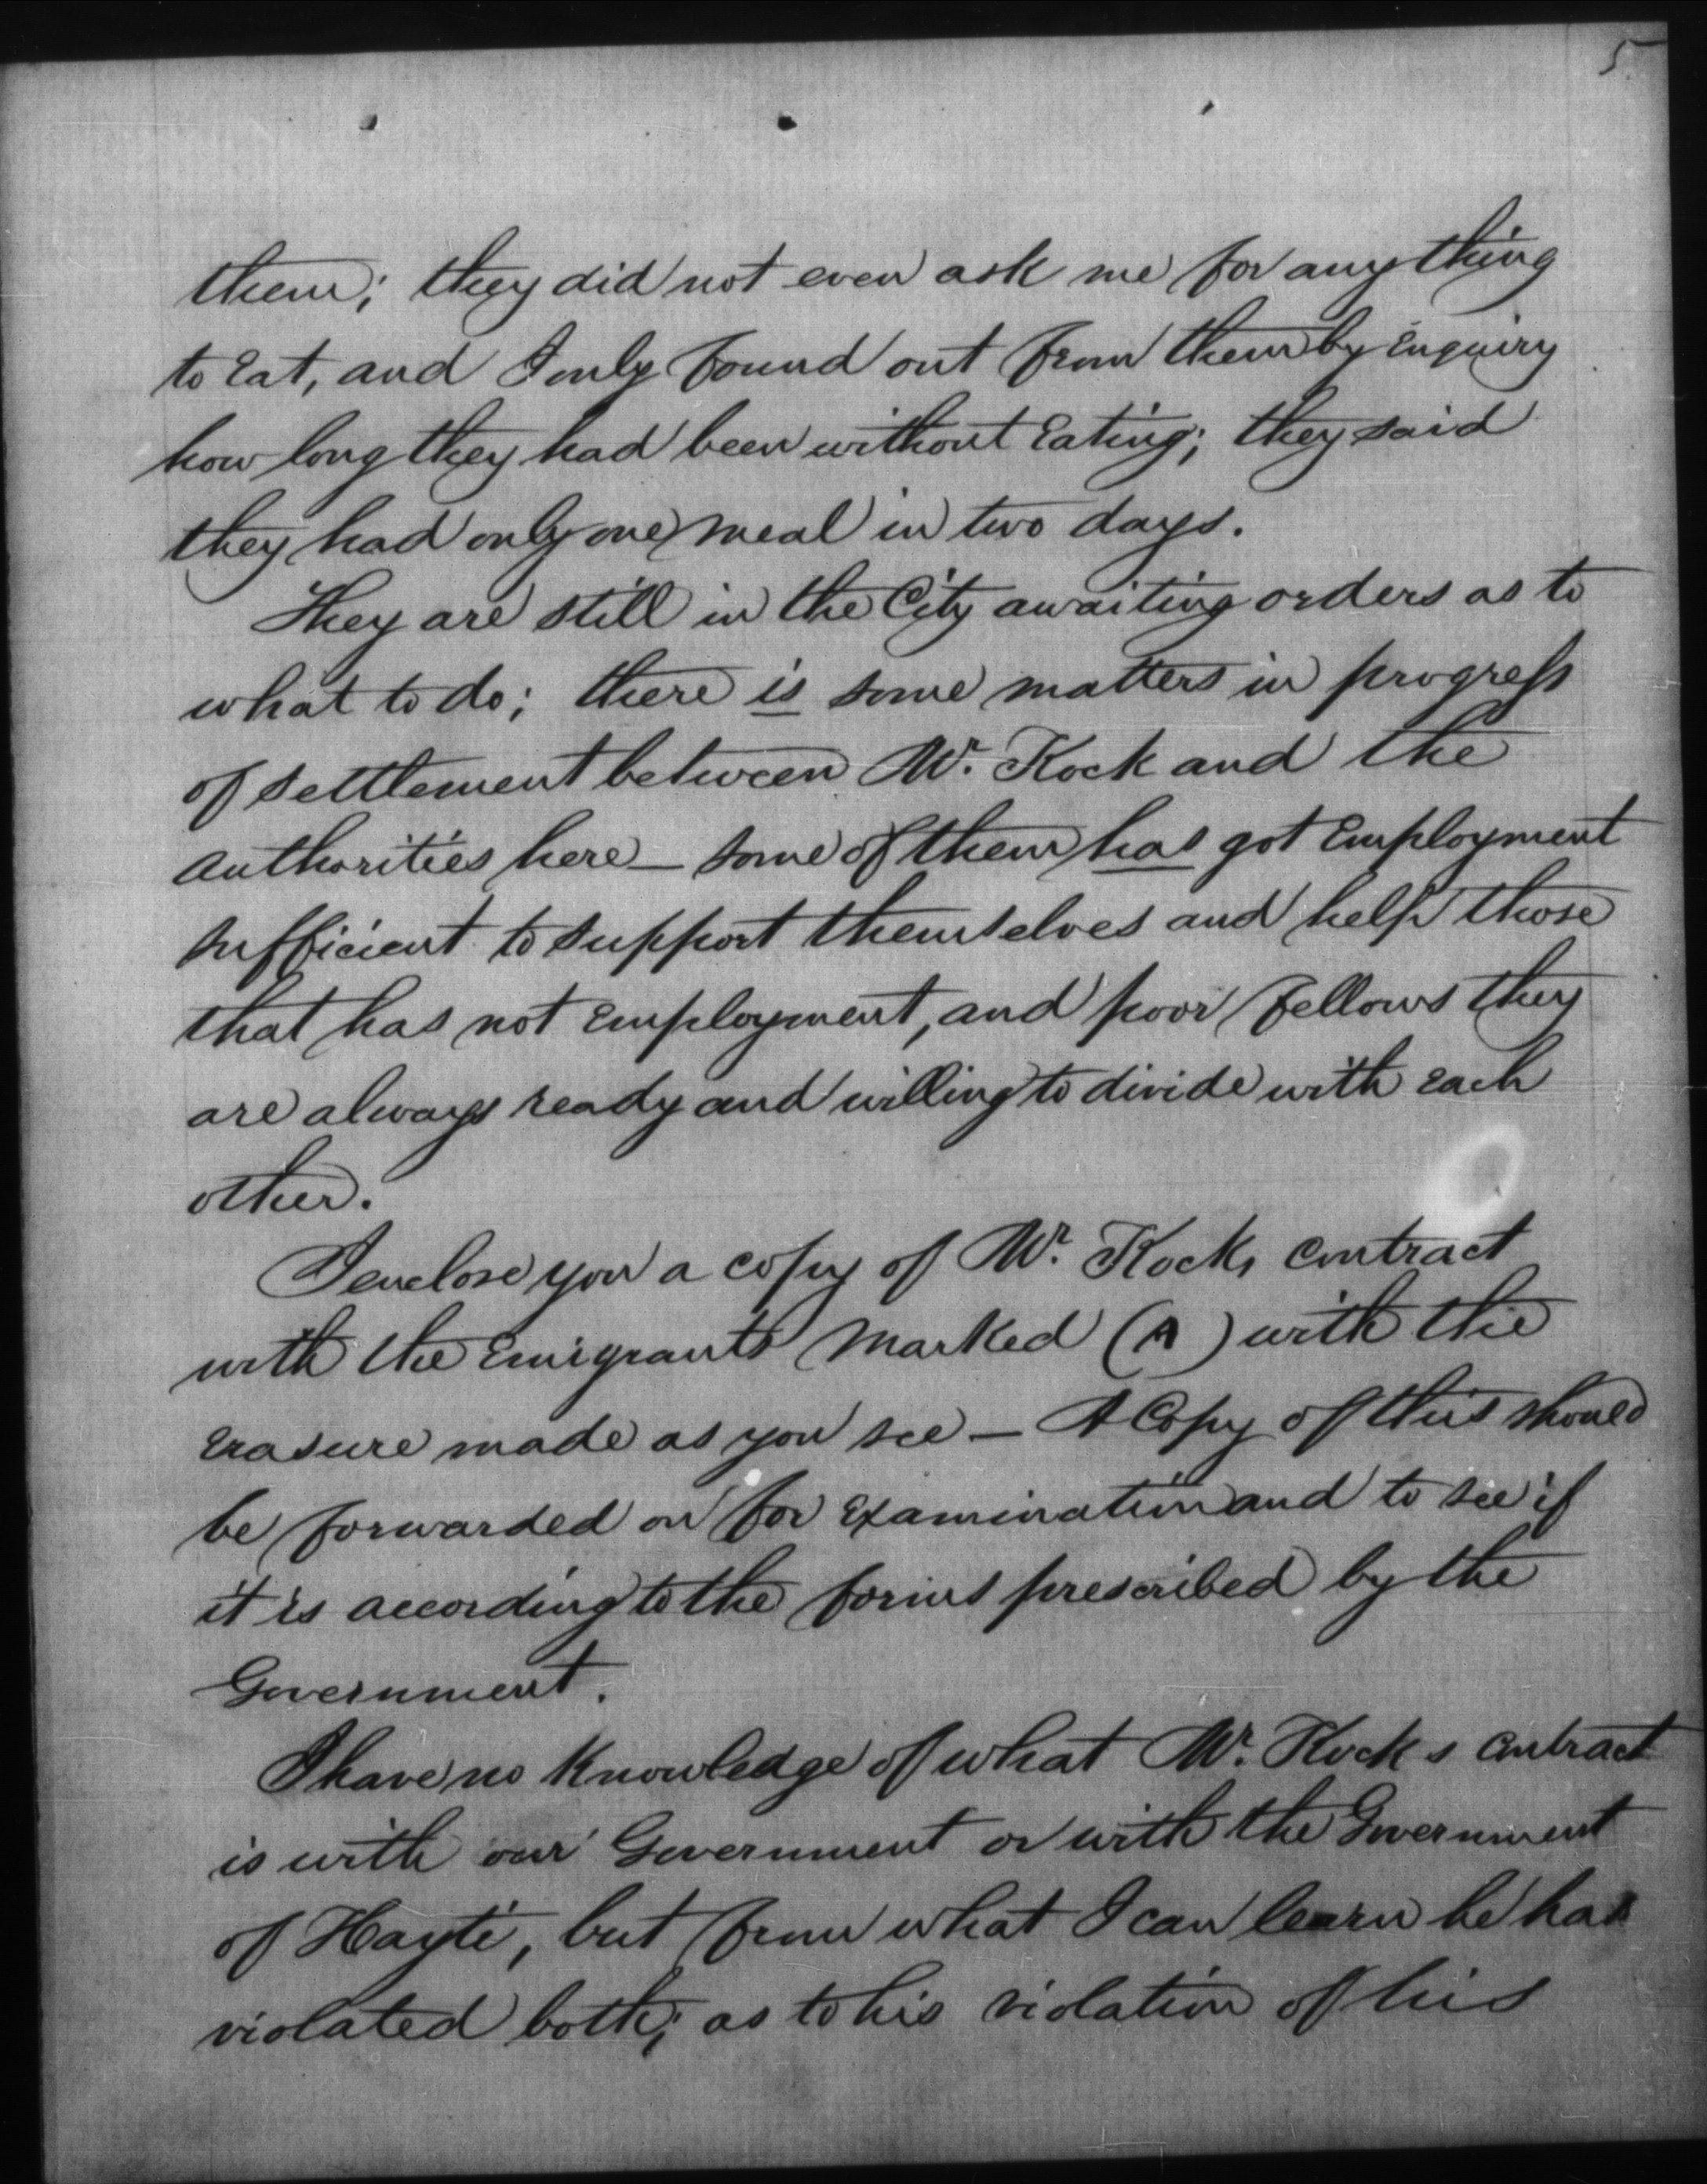 5
them; they did not even ask me for anything
to Eat, and I only found out from them by Enquiry
how long they had been without Eating; they said
they had only one meal in two days.
They are still in the City awaiting orders as to
what to do; there is some matters in progress
of settlement between Mr. Kock and the
authorities here — some of them has got Employment
sufficient to support themselves and help those
that has not Employment, and poor fellows they
are always ready and willing to divide with Each
other.
I enclose you a copy of Mr. Kocks contract
with the Emigrants marked (A) with the
Erasure made as you see — A Copy of this should
be forwarded on for Examination and to see if
it is according to the forms prescribed by the
Government.
I have no Knowledge of what Mr. Kocks contract
is with our Government or with the Government
of Hayti, but from what I can learn he has
violated both; as to his violation of his